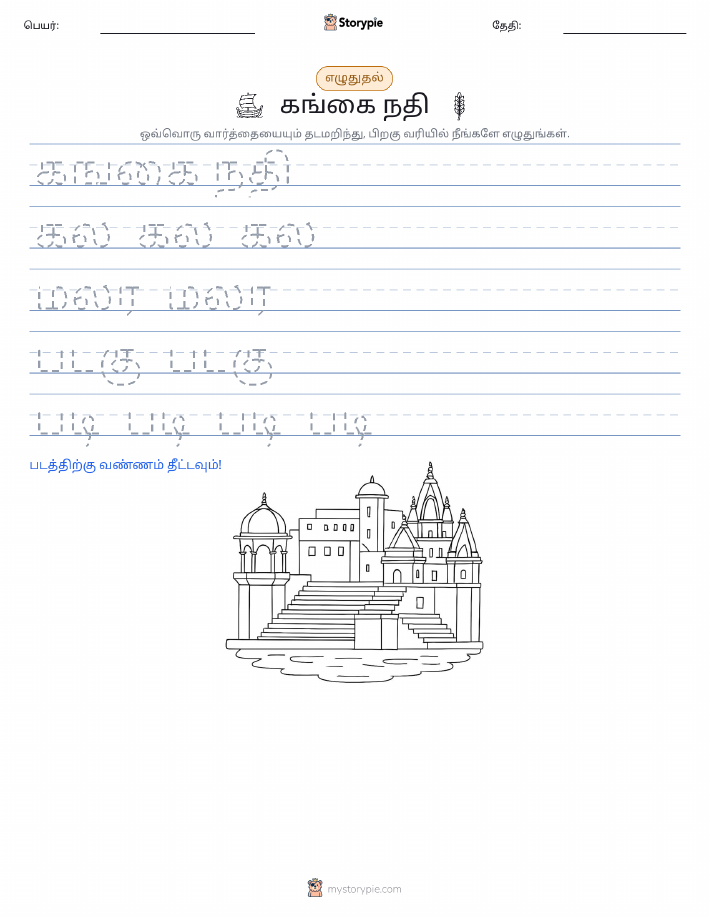 பெயர்: Storypie தேதி:
எழுதுதல்
கங்கை நதி
ஒவ்வொரு வார்த்தையையும் தடமறிந்து, பிறகு வரியில் நீங்களே எழுதுங்கள்.
கஙலைக நதி
கல கல கல
மலர மலர
படகு படகு
படி படி படி படி
படத்திற்கு வண்ணம் தீட்டவும்!
mystorypie.com